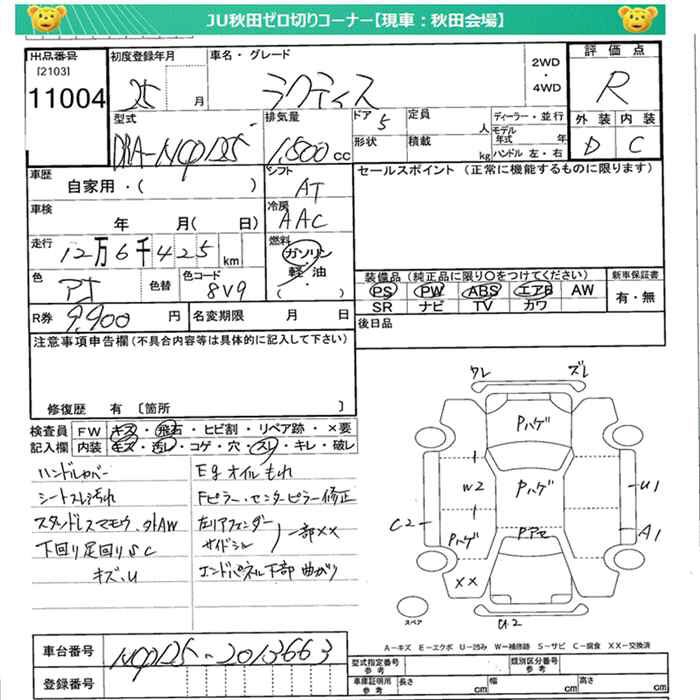 JU秋田ゼロ切りコーナー【現車：秋田会場】
出品番号
[2103]
11004
初度登録年月
25 月
車名・グレード
ラクティス
2WD
・
4WD
評価点
R
外装 内装
D C
型式
DBA-NCP125
排気量
1,500 cc
ドア 5
形状
定員 人
積載 kg
ディーラー・並行
モデル年式 年
ハンドル 左・右
車歴
自家用・( )
シフト
AT
車検
年 月( 日)
冷房
AAC
走行
12万6千425 km
燃料
ガソリン
軽・油
( )
色
色替
色コード
8V9
R券 9,900 円
名変期限 月 日
セールスポイント（正常に機能するものに限ります）
装備品（純正品に限り○をつけてください）
PS PW ABS エアB AW
SR ナビ TV カワ
新車保証書
有・無
後日品
注意事項申告欄（不具合内容等は具体的に記入して下さい）
修復歴 有 〔箇所 〕
検査員記入欄
FW キズ・飛石・ヒビ割・リペア跡・×要
内装 キズ・汚レ・コゲ・穴・スレ・キレ・破レ
ハンドルカバー
シートスレ汚れ
下回り足回りSC
キズ、U
Egオイルもれ
Fピラー・センターピラー修正
左リアフェンダー
サイドシル
一部××
エンドパネル下部 曲がり
ワレ ズレ
Pハゲ
W2
Pハゲ
U1
C2
A1
Pハゲ
××
U2
スペア
A－キズ E－エクボ U－凹み W－補修跡 S－サビ C－腐食 XX－交換済
車台番号
NCP125-2013663
登録番号
型式指定番号
参考
類別区分番号
参考
車庫証明用
参考
長さ cm
幅 cm
高さ cm